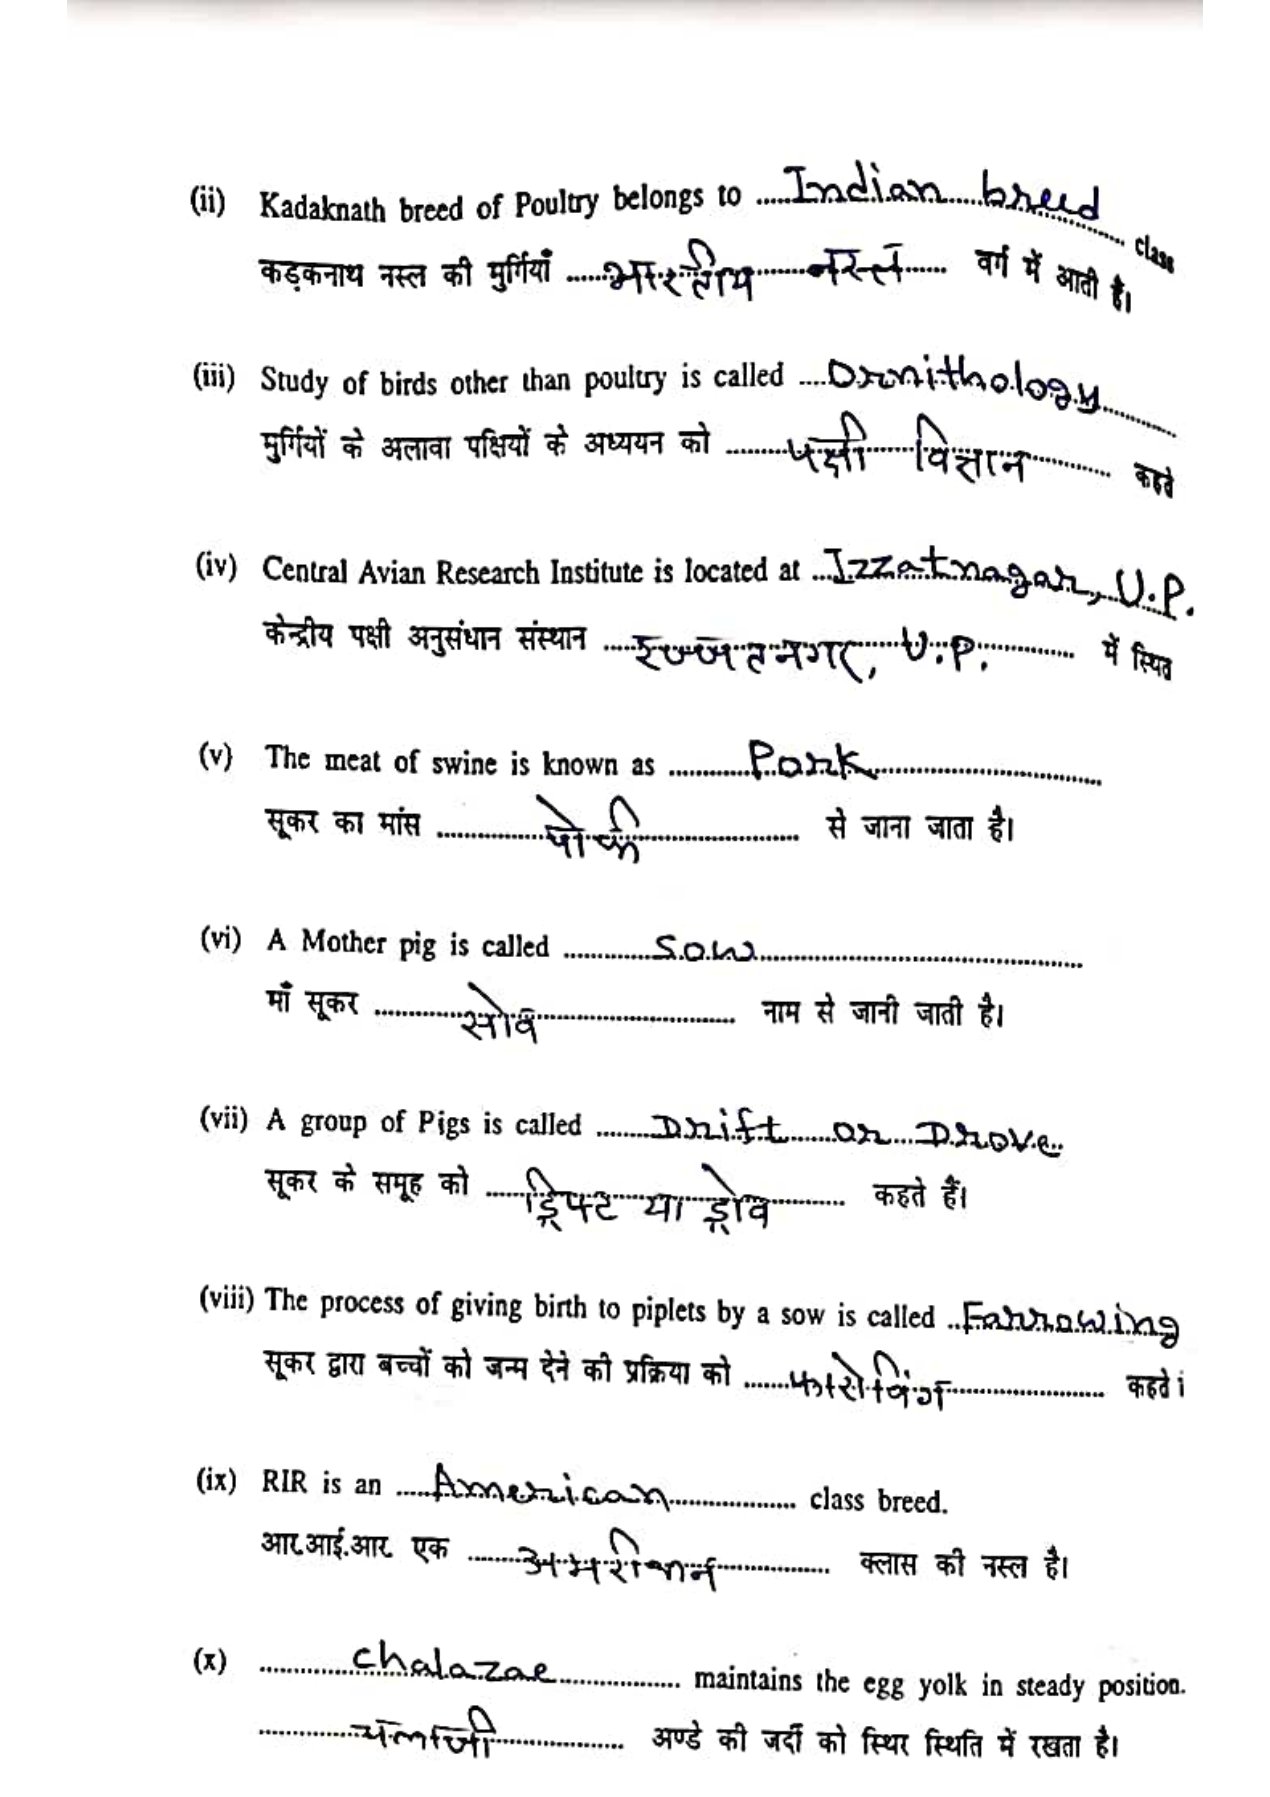 (ii) Kadaknath breed of Poultry belongs to .....Indian breed..... class
कड़कनाथ नस्ल की मुर्गियाँ .....भारतीय नस्ल..... वर्ग में आती है।
(iii) Study of birds other than poultry is called ....Ornithology..........
मुर्गियों के अलावा पक्षियों के अध्ययन को .........पक्षी विज्ञान......... कहते
(iv) Central Avian Research Institute is located at ...Izzatnagar, U.P.
केन्द्रीय पक्षी अनुसंधान संस्थान .....इज्जतनगर, U.P. .......... में स्थित
(v) The meat of swine is known as ..........Pork..............................
सूकर का मांस ...............पोर्क.................... से जाना जाता है।
(vi) A Mother pig is called ............Sow........................................
माँ सूकर .............सोव......................... नाम से जानी जाती है।
(vii) A group of Pigs is called ........Drift or Drove..
सूकर के समूह को .....ड्रिफ्ट या ड्रोव.......... कहते हैं।
(viii) The process of giving birth to piplets by a sow is called ..Farrowing
सूकर द्वारा बच्चों को जन्म देने की प्रक्रिया को ......फारोविंग.................... कहते i
(ix) RIR is an .....American................. class breed.
आर.आई.आर. एक .......अमरीकान.............. क्लास की नस्ल है।
(x) .............Chalazae................. maintains the egg yolk in steady position.
.............चलाजी................. अण्डे की जर्दी को स्थिर स्थिति में रखता है।